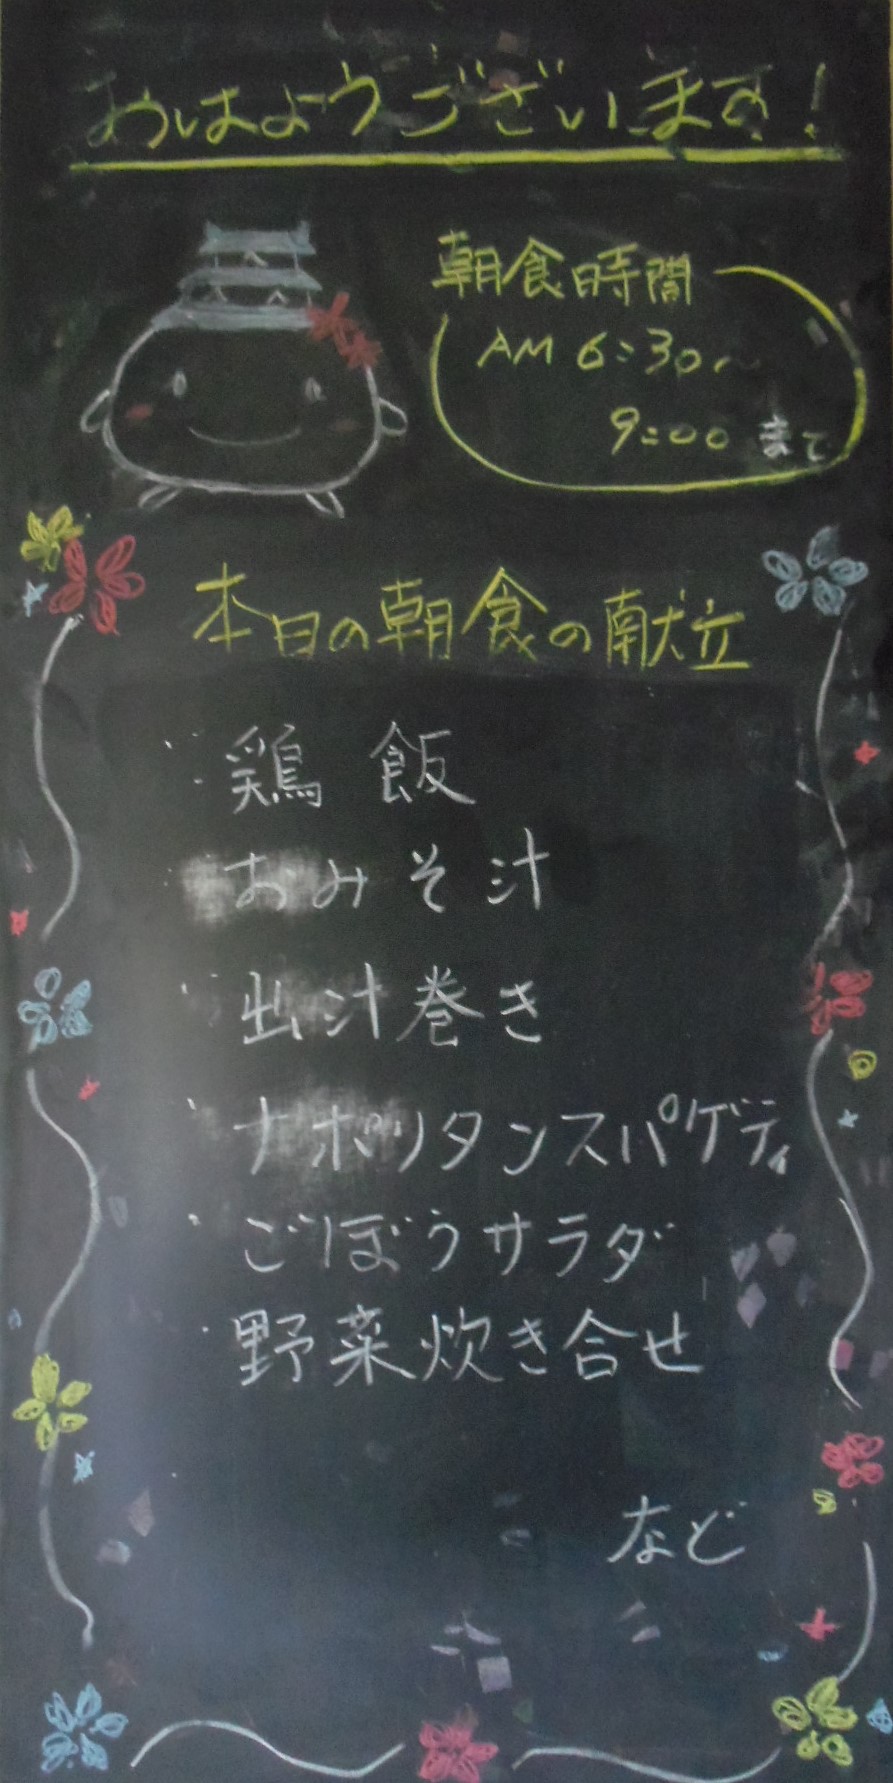 おはようございます!
朝食時間
AM 6:30～
9:00 まで
本日の朝食の献立
・鶏飯
・おみそ汁
・出汁巻き
・ナポリタンスパゲティ
・ごぼうサラダ
・野菜炊き合せ
など